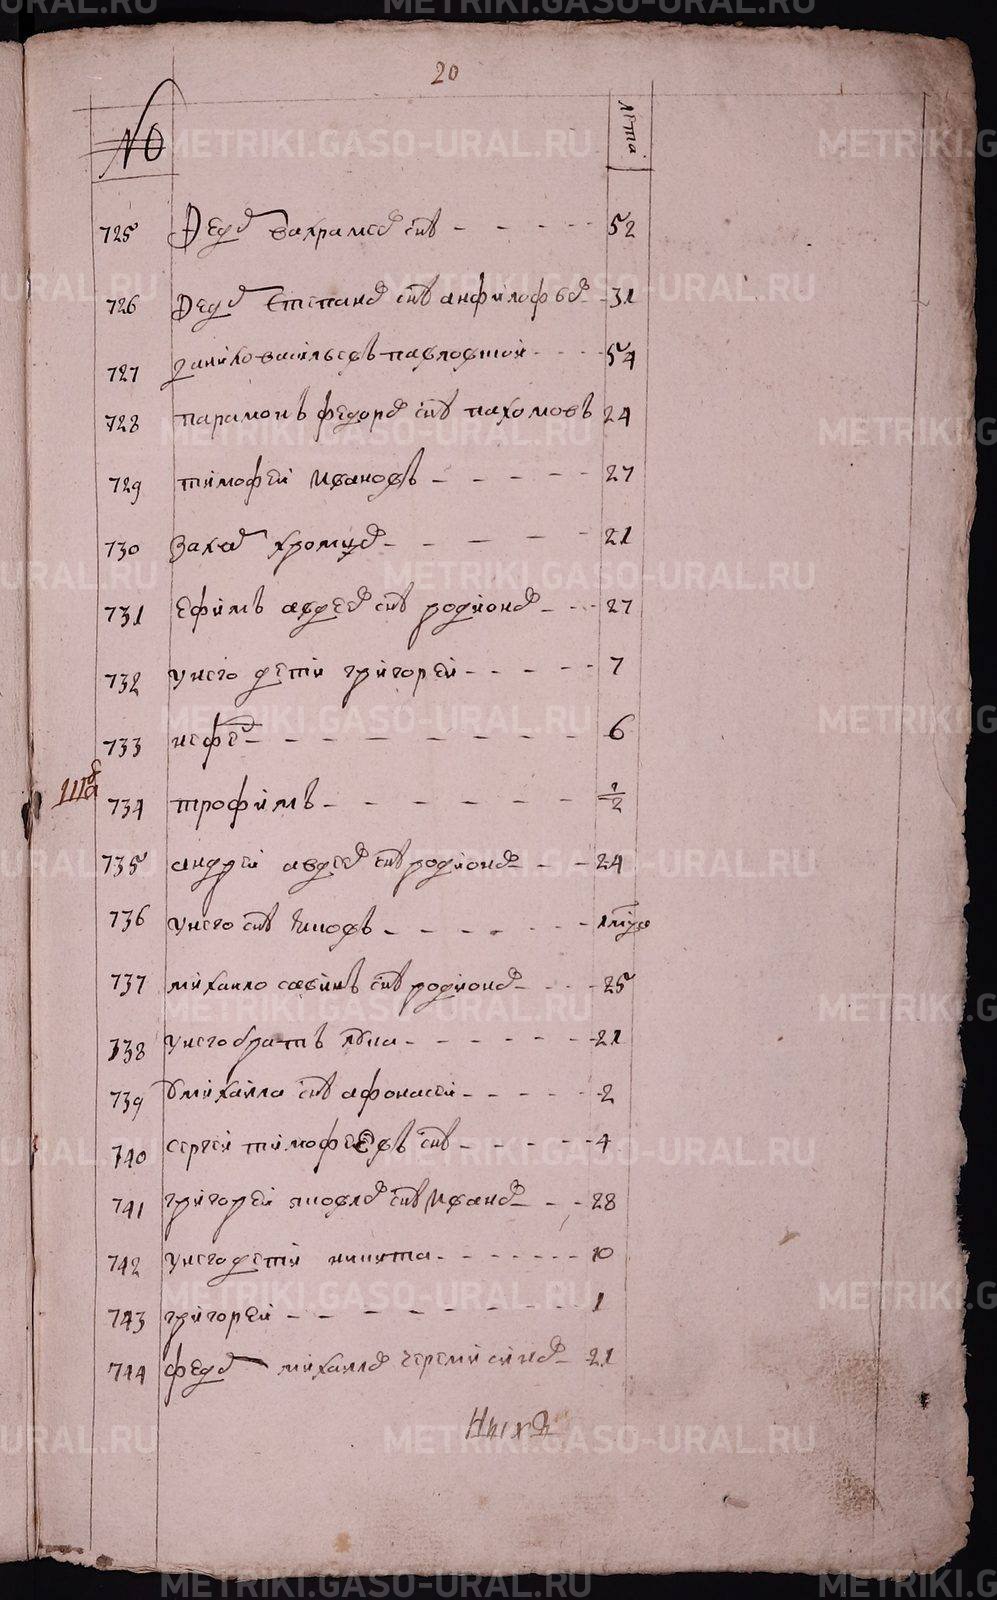 20
№ лета
725 Федо вахрамеев сн҃ъ - - - - - 52
726 Федо степанов сн҃ъ анфилофьев - 31
727 данило васильевъ павловской - - - - 54
728 парамонъ федоров сн҃ъ пахомовъ 24
729 тимофей ивановъ - - - - - 27
730 Заха хромцов - - - - - 21
731 ефимъ авдеев сн҃ъ родионов - - - 27
732 унего дети григорей - - - - - 7
733 нефе - - - - - - - - - 6
734 трофимъ - - - - - - - 1/2
735 андрей авдеев сн҃ъ родионов - - 24
736 унего сн҃ъ - - - - - - 1
737 михаило савинъ сн҃ъ родионов - - - - 25
738 унего братъ - - - - - - - 21
739 Умихаила сн҃ъ афонасей - - - - - 2
740 сергей тимофеевъ сн҃ъ - - - - - - 4
741 григорей яковлев сн҃ъ иванов - - - 28
742 унего дети никита - - - - - - - 10
743 григорей - - - - - - - - 1
744 федо михаилов черемисинов - 21
ныхъ
METRIKI.GASO-URAL.RU